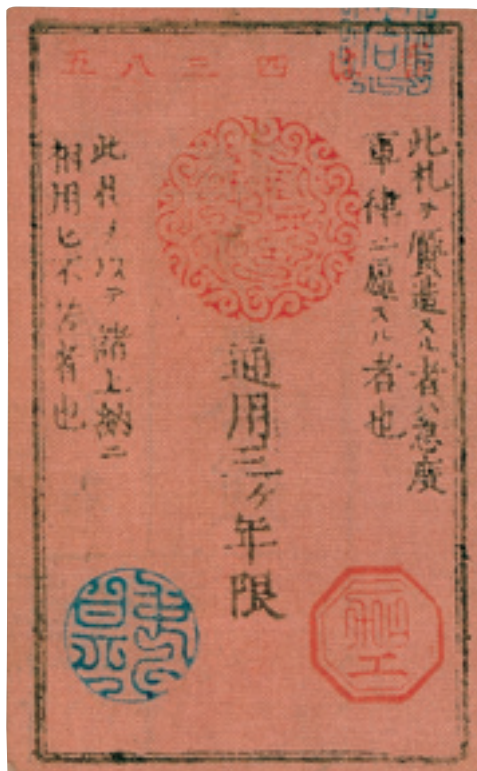 四三八五
此札ヲ贋造スル者ハ急度
軍律ニ處スル者也
通用三ヶ年限
此札ヲ以テ諸上納ニ
相用ヒ不苦者也